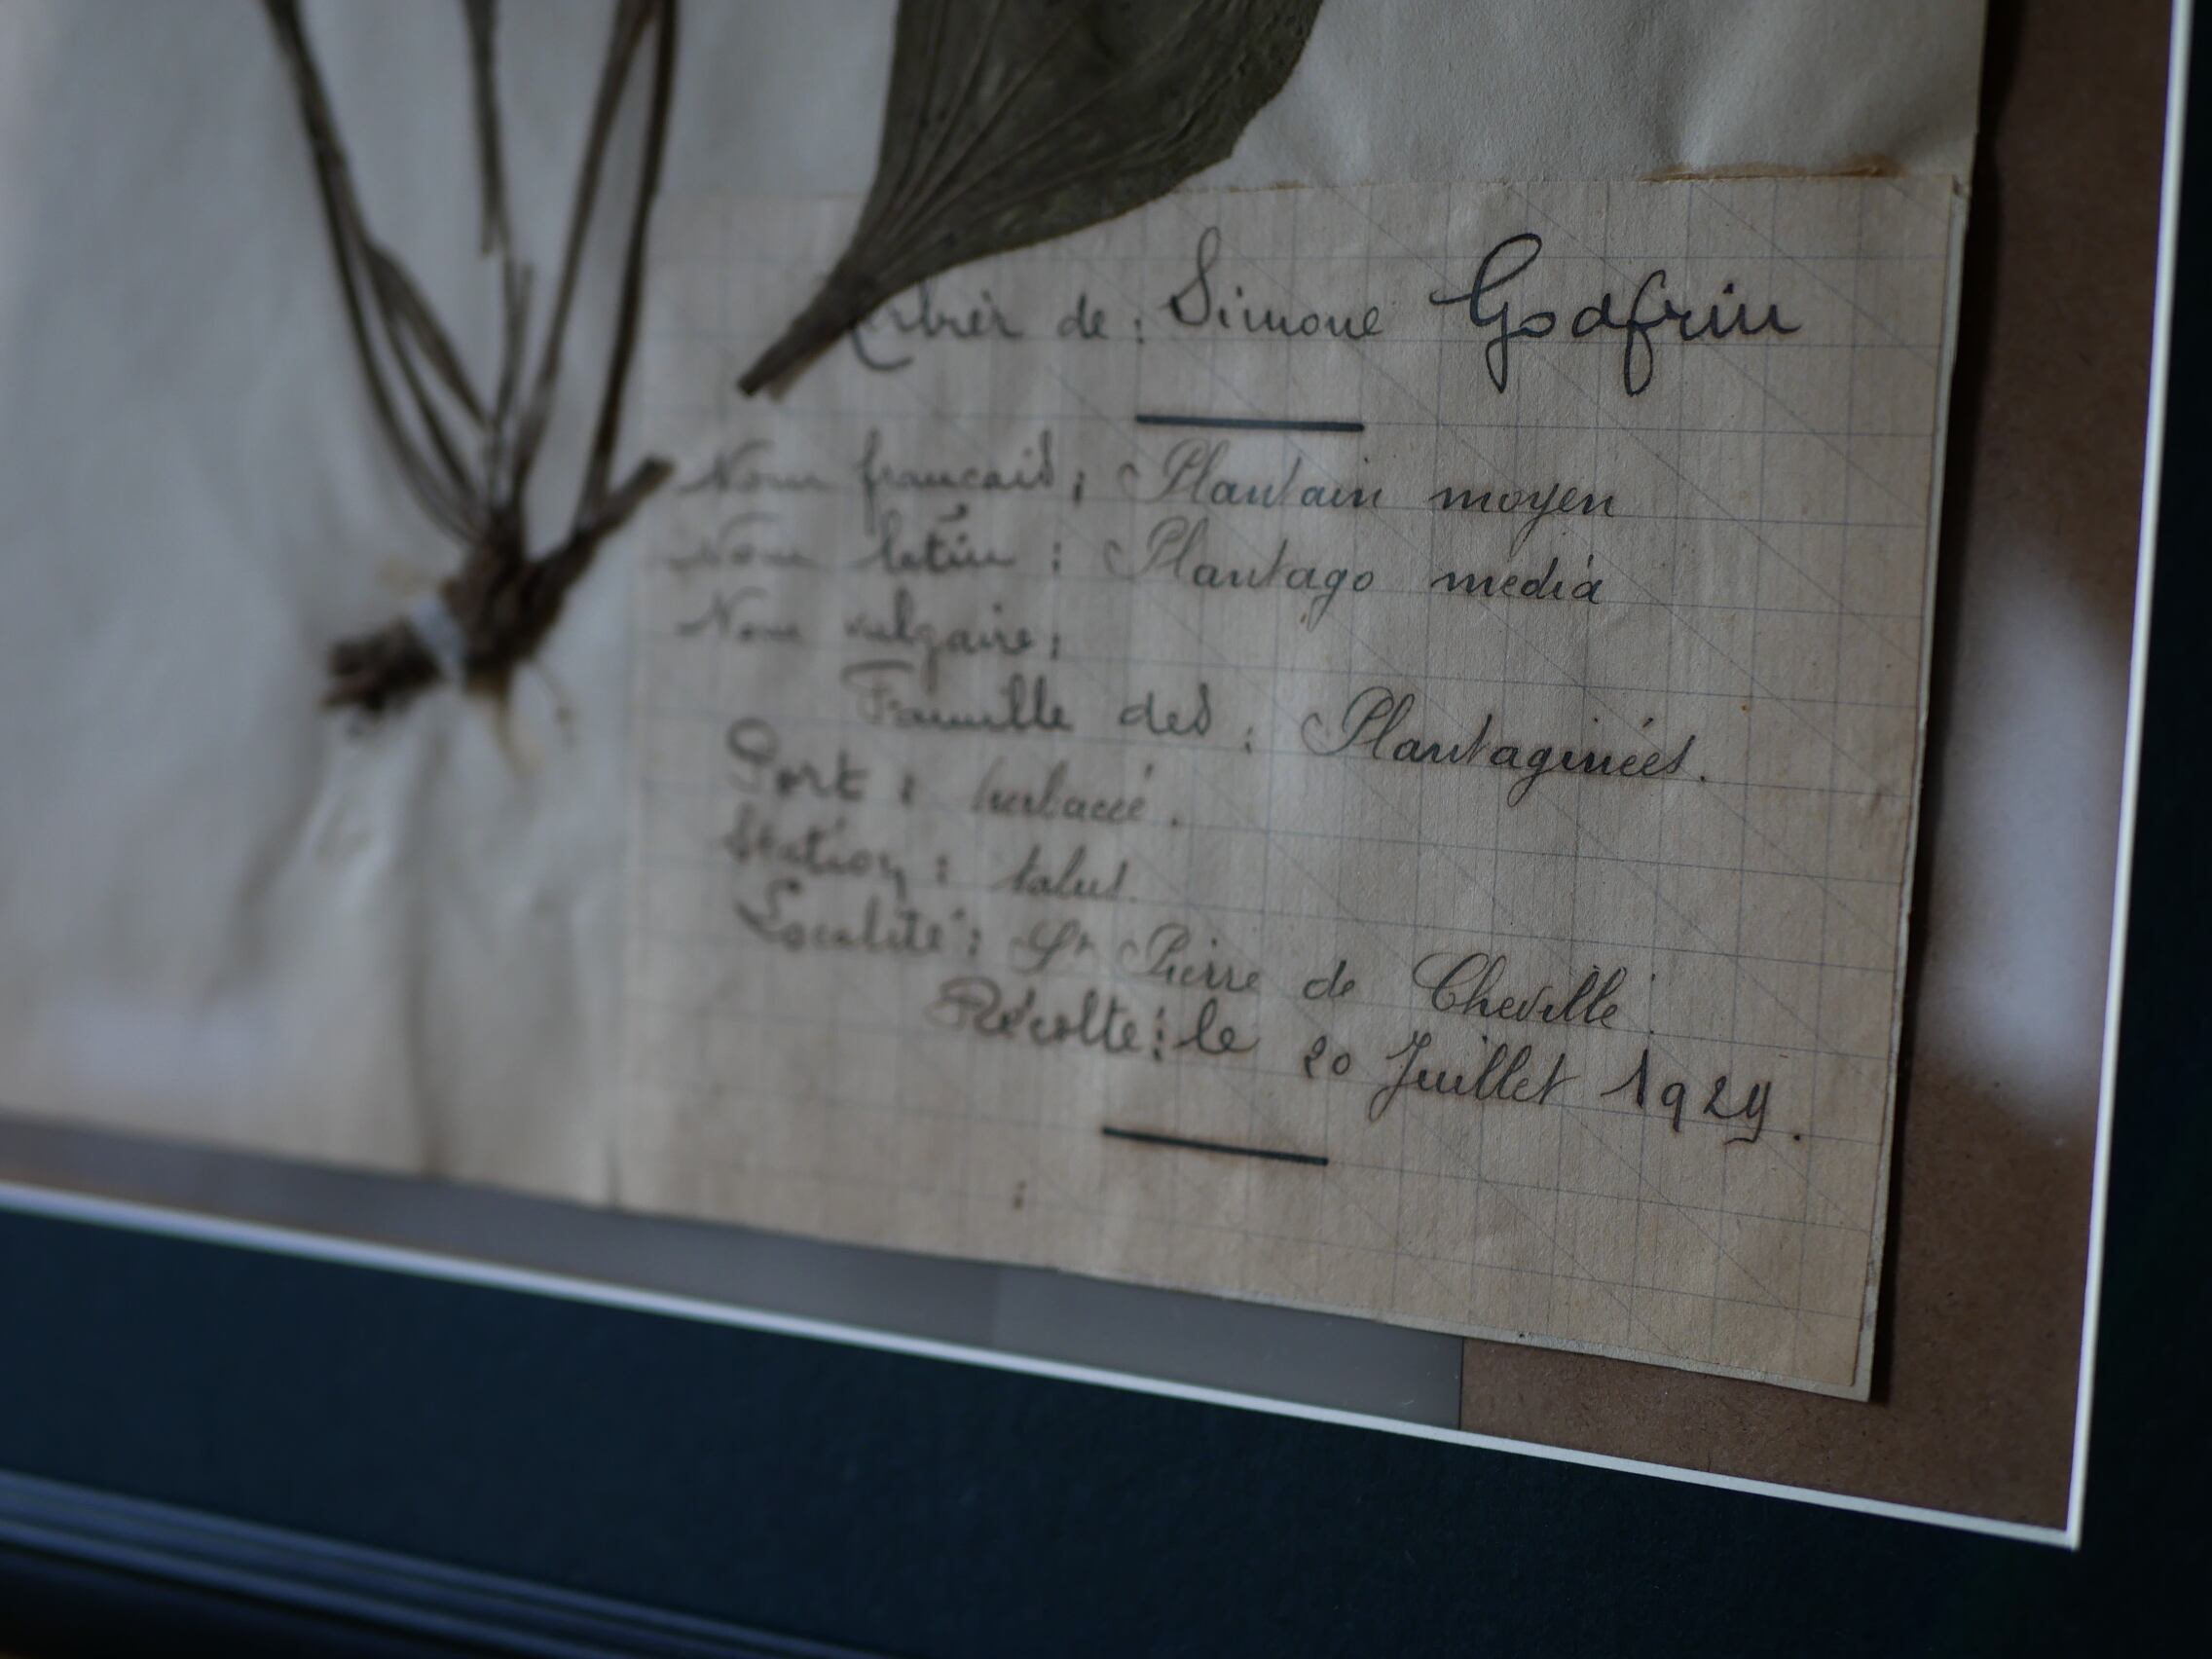 Herbier de : Simone Godfrin
Nom français : Plantain moyen
Nom latin : Plantago media
Nom vulgaire :
Famille des : Plantaginées.
Port : herbacé.
Station : talus.
Localité : St Pierre de Chevillé.
Récolte : le 20 Juillet 1929.